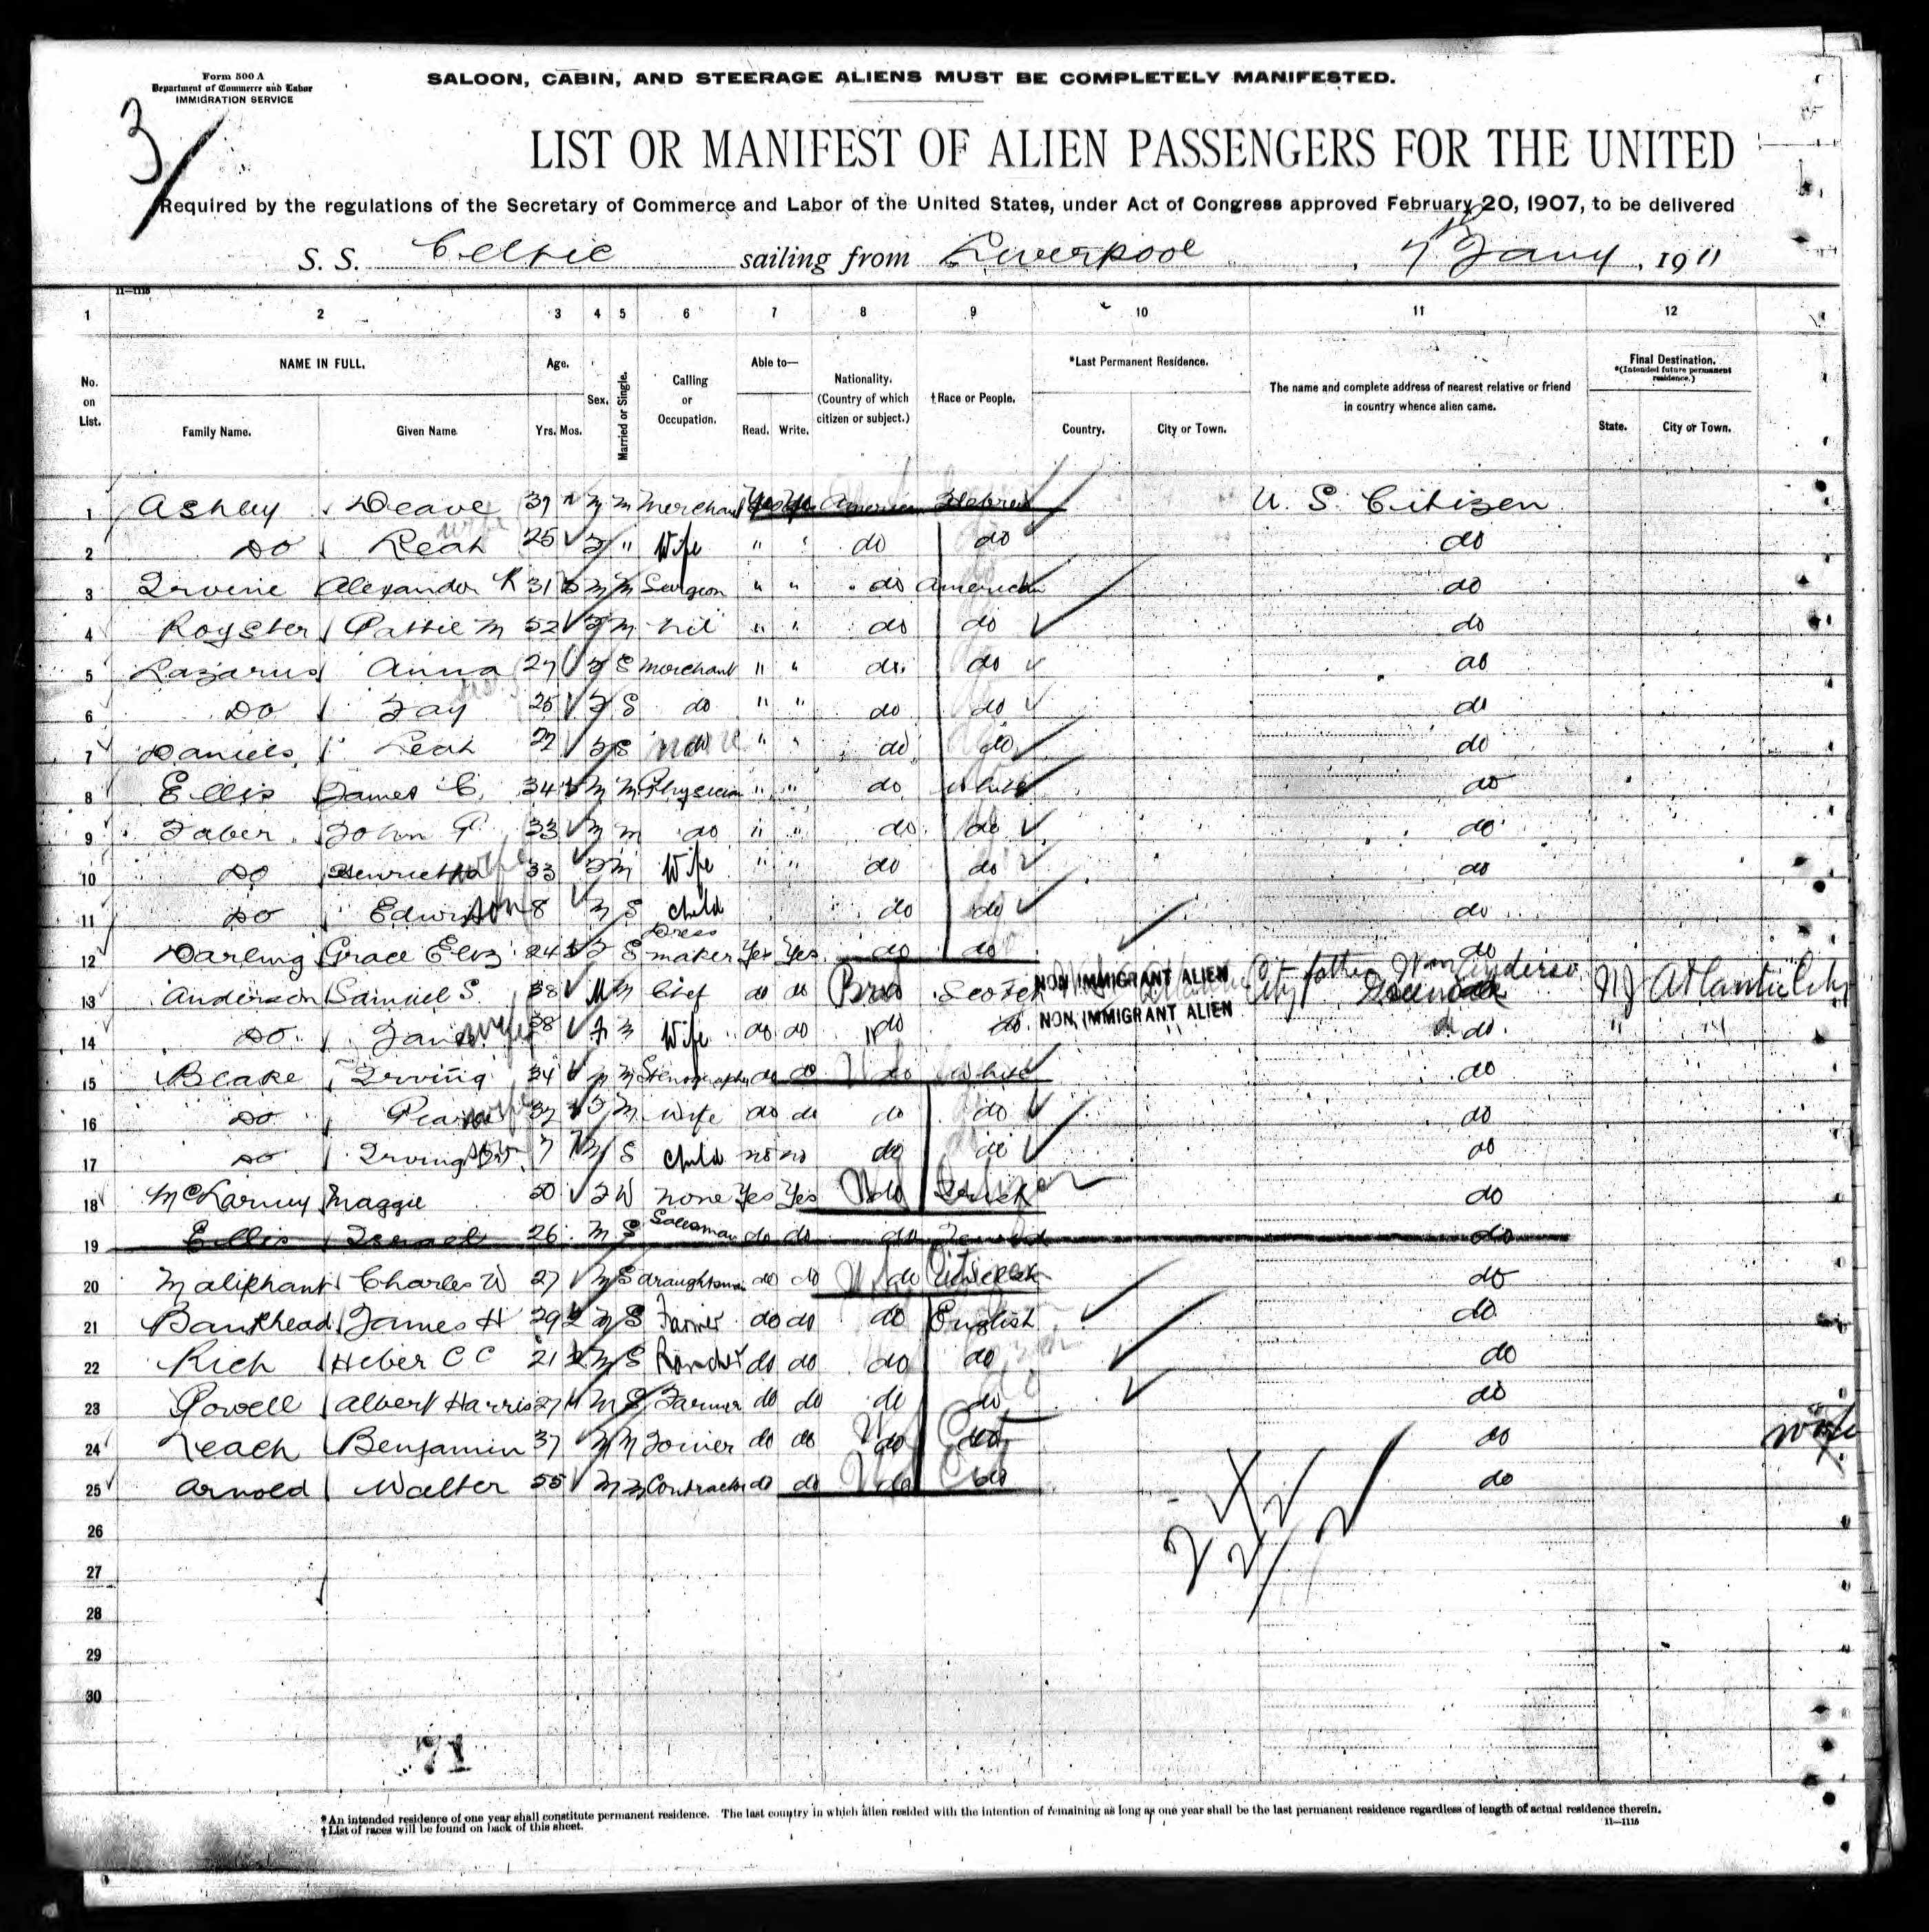 Form 500 A
Department of Commerce and Labor
IMMIGRATION SERVICE
3
SALOON, CABIN, AND STEERAGE ALIENS MUST BE COMPLETELY MANIFESTED.
LIST OR MANIFEST OF ALIEN PASSENGERS FOR THE UNITED
Required by the regulations of the Secretary of Commerce and Labor of the United States, under Act of Congress approved February 20, 1907, to be delivered
S. S. Celtic sailing from Liverpool, 7th Jany, 1911
11—1115
1 2 3 4 5 6 7 8 9 10 11 12
No. on List.
NAME IN FULL.
Family Name. Given Name
Age.
Yrs. Mos.
Sex.
Married or Single.
Calling or Occupation.
Able to—
Read. Write.
Nationality. (Country of which citizen or subject.)
†Race or People.
*Last Permanent Residence.
Country. City or Town.
The name and complete address of nearest relative or friend in country whence alien came.
Final Destination.
*(Intended future permanent residence.)
State. City or Town.
1 Ashley Deave 39 M M Merchant Yes Yes American Hebrew U. S. Citizen
2 Do Leah wife 25 F " Wife " " do do do
3 Irvine Alexander R 31 M M Surgeon " " do American do
4 Royster Pattie M 52 F M nil " " do do do
5 Lazarus Anna 27 F S Merchant " " do do do
6 Do Fay 25 F S do " " do do do
7 Daniels, Leah 22 F S do none " " do do do
8 Ellis James C. 34 M M Physician " " do White do
9 Faber John P 33 M M do " " do do do
10 Do Henrietta wife 33 F M Wife " " do do do
11 Do Edwin son 8 M S Child do do do
12 Darling Grace Eliz 24 F S Dress maker Yes Yes do do do
13 Anderson Samuel S. 38 M M Chef do do Scotch NON IMMIGRANT ALIEN father Wm NJ Atlantic City
14 Do Jane wife 38 F M Wife do do do do NON IMMIGRANT ALIEN do " "
15 Blake Irving 34 M M Stenographer do do do White do
16 Do Pearl wife 32 F M Wife do do do do do
17 Do Irving son 7 M S Child no no do do do
18 McLarney Maggie 50 F W none Yes Yes do do
19 Ellis Israel 26 M S Salesman do do do do
20 Maliphant Charles W 27 M S draughtsman do do do do
21 Bankhead James H 29 M S Farmer do do do English do
22 Rich Heber C C 21 M S Rancher do do do do do
23 Powell Albert Harris 27 M S Farmer do do do do do
24 Leach Benjamin 37 M M Joiner do do do do do wife
25 Arnold Walter 55 M M Contractor do do do do do
26
27
28
29
30
71
*An intended residence of one year shall constitute permanent residence. The last country in which alien resided with the intention of remaining as long as one year shall be the last permanent residence regardless of length of actual residence therein.
†List of races will be found on back of this sheet.
11—1115